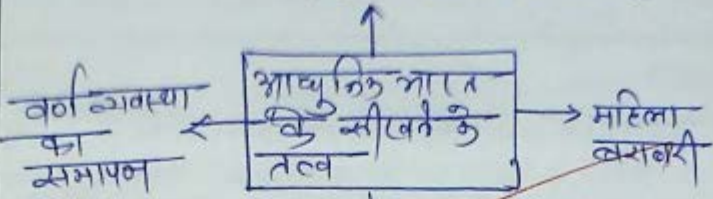 वर्ण व्यवस्था
का
समापन
आधुनिक भारत
के सीखने के
तत्व
महिला
बराबरी